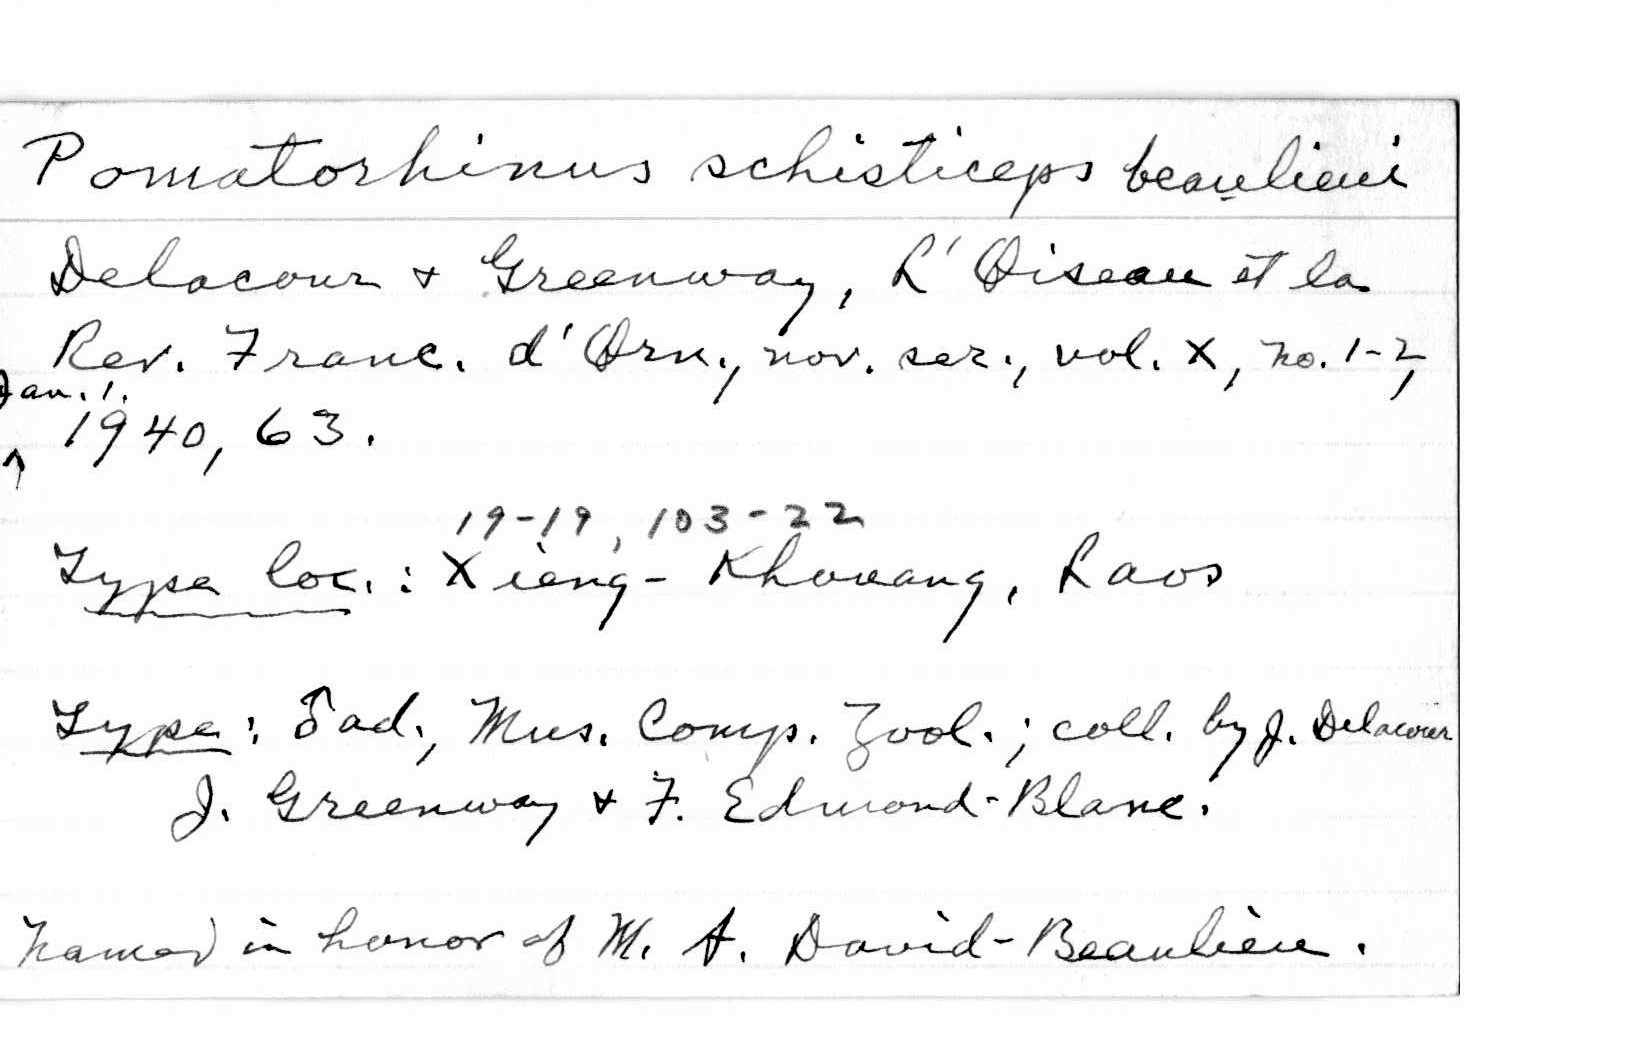 Pomatorhinus schisticeps beaulieui
Delacour & Greenway, L'Oiseau et la
Rev. Franc. d'Orn., nov. ser., vol. X, no. 1-2,
Jan. 1.
1940, 63.
19-19, 103-22
Type loc.: Xieng-Khouang, Laos
Type: ♂ ad., Mus. Comp. Zool.; coll. by J. Delacour
J. Greenway & F. Edmond-Blanc.
Named in honor of M. A. David-Beaulieu.